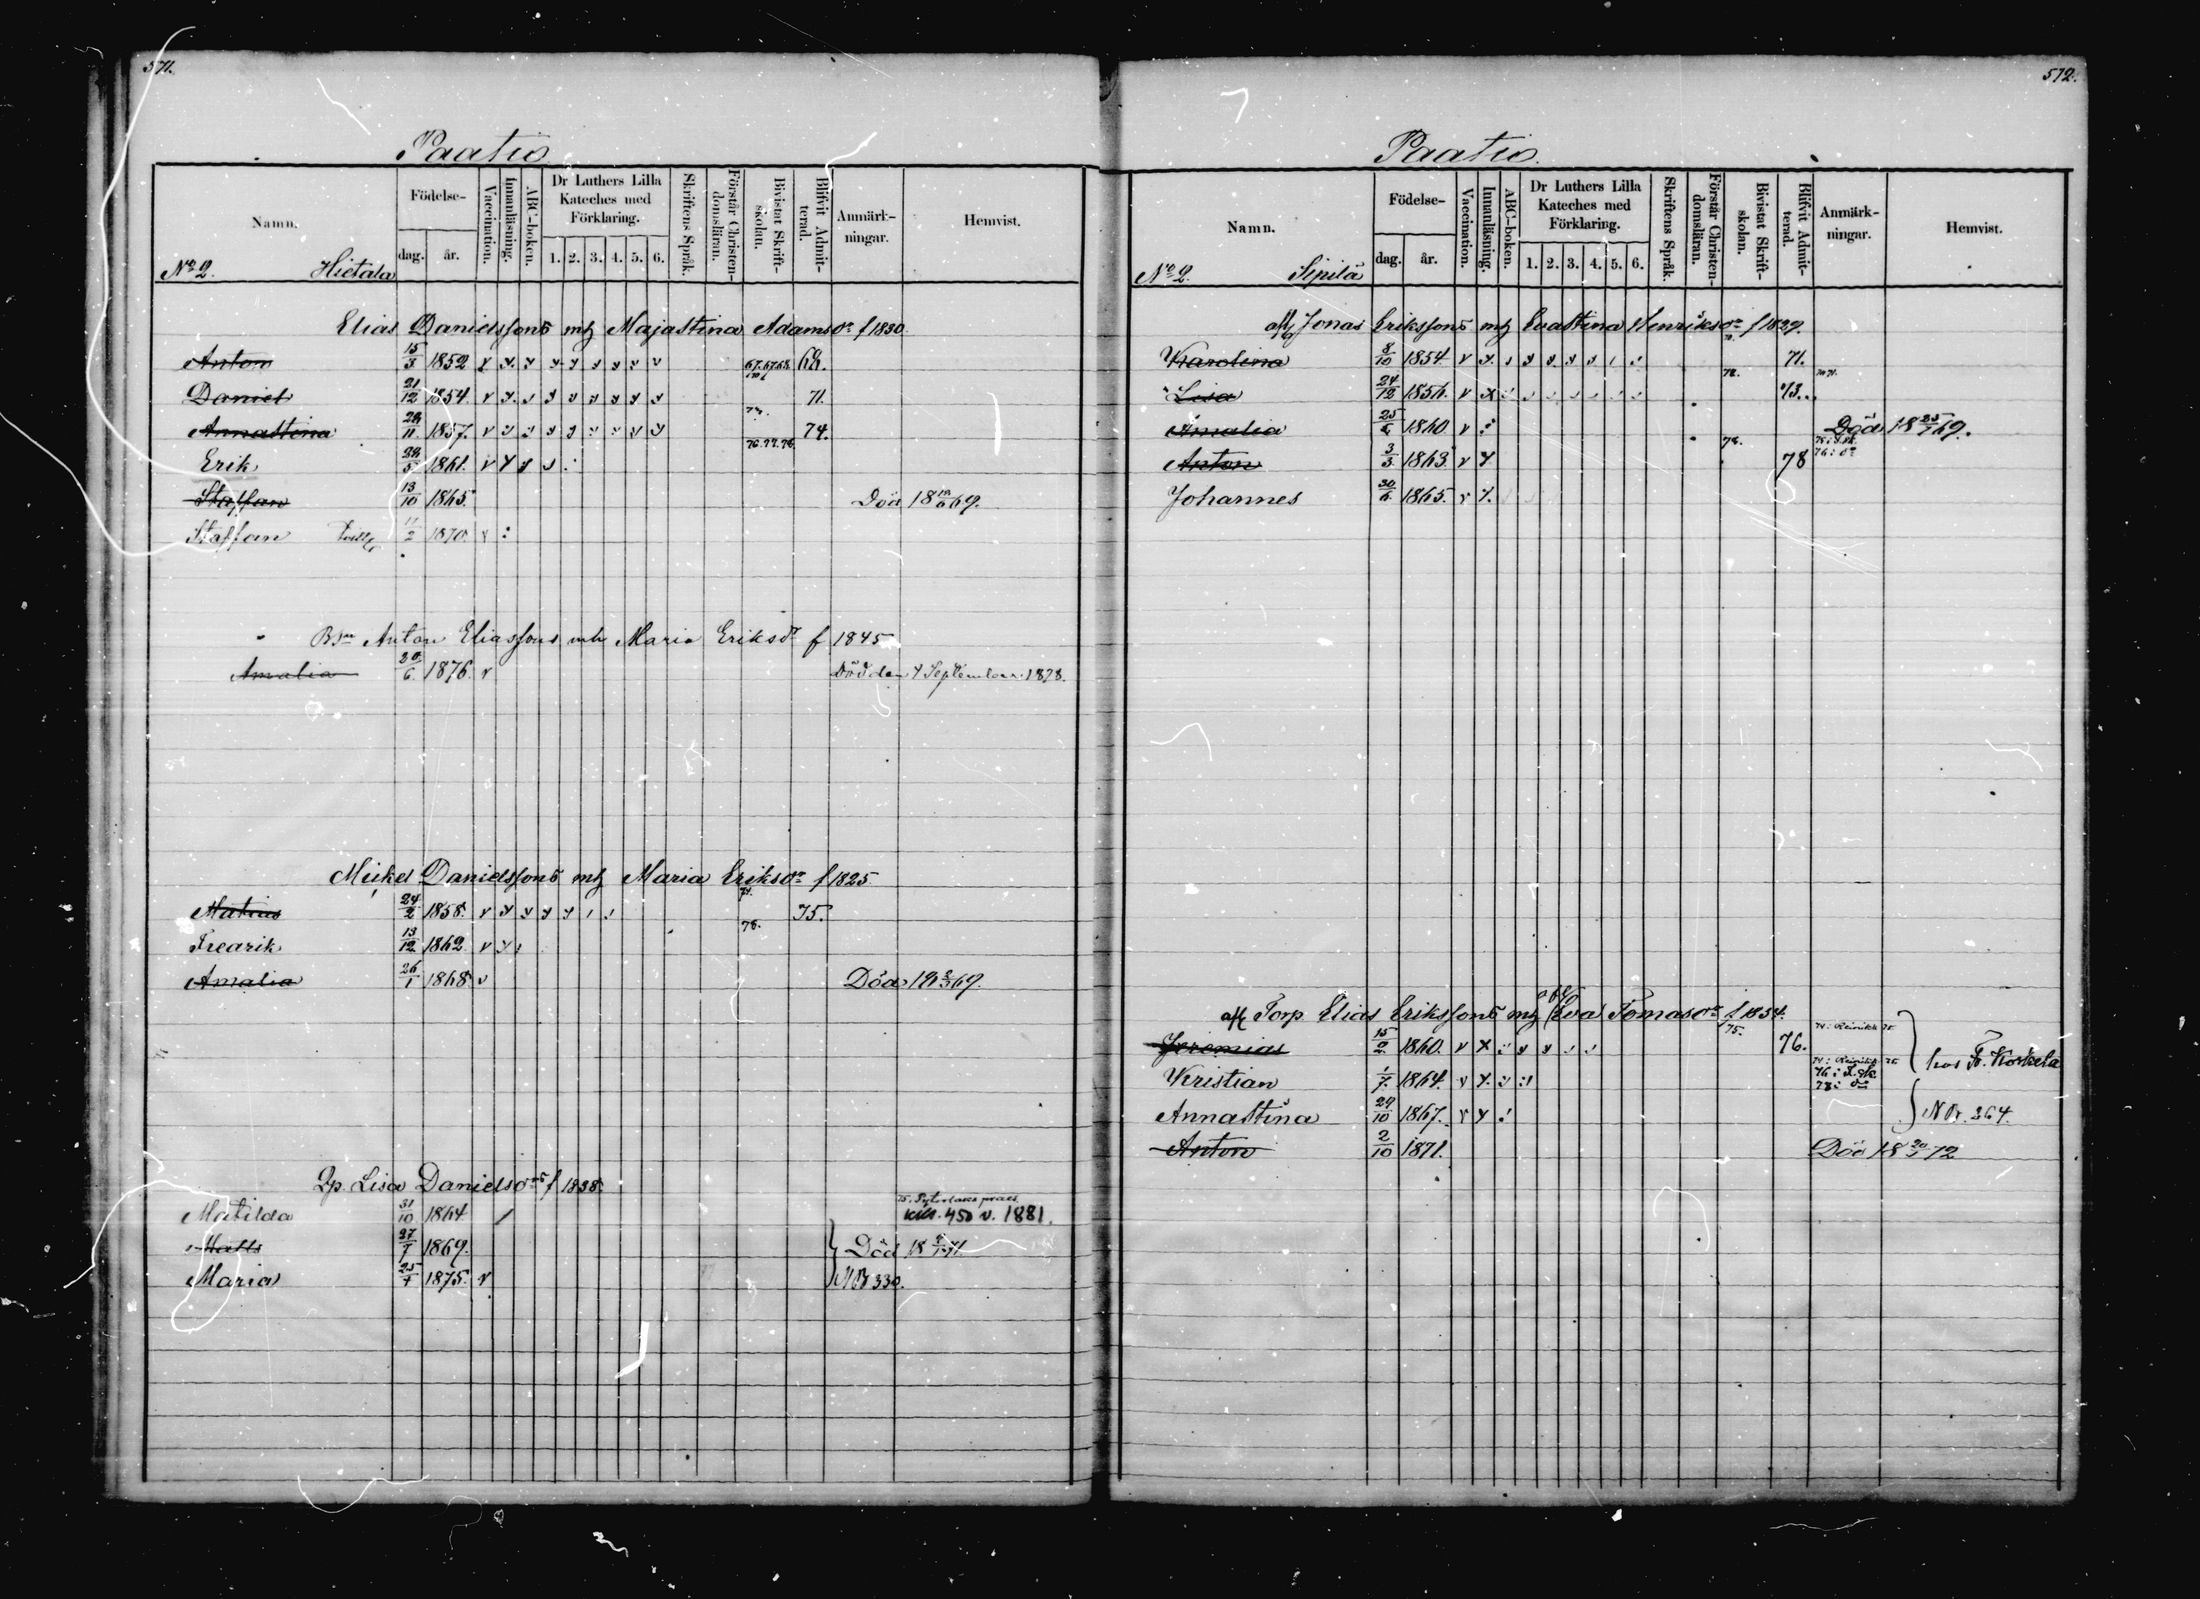 571.
Paatio
Namn. Födelse- dag. år. Vaccination. Innanläsning. ABC-boken. Dr Luthers Lilla Kateches med Förklaring. 1. 2. 3. 4. 5. 6. Skriftens Språk. Förstår Christendomsläran. Bivistat Skriftskolan. Blifvit Admitterad. Anmärkningar. Hemvist.
No 2. Hietala
Elias Danielssons mh Majastina Adamsdr f 1830
Anton 15/3 1852 67.67.68. 68.
Daniel 21/12 1854. 71.
Annastina 1857. 74.
76.77.78.
Erik 1861.
Staffan 13/10 1865. Död 18 69.
Staffan tvill 11/2 1870.
Bsn Anton Eliassons mh Maria Eriksdr f 1845
Amalia 20/6 1876. Död den 4 September 1878.
Mickel Danielssons mh Maria Eriksdr f 1825
Matias 24/2 1858. 75.
Fredrik 13/12 1862. 78.
Amalia 26/1 1868 Död 18 69.
Lisa Danielsdrs f 1838.
Matilda 31/10 1864. 450 v. 1881.
Matts 27/7 1869. Död 18 71
Maria 25/4 1875. NB 330.
572.
Paatio.
Namn. Födelse- dag. år. Vaccination. Innanläsning. ABC-boken. Dr Luthers Lilla Kateches med Förklaring. 1. 2. 3. 4. 5. 6. Skriftens Språk. Förstår Christendomsläran. Bivistat Skriftskolan. Blifvit Admitterad. Anmärkningar. Hemvist.
No 2. Sipilä
afl Jonas Erikssons mh Evastina Henriksdr f 1829.
Karolina 8/10 1854 71.
Lisa 24/12 1856. 73.
Amalia 1860 Död 18 69.
Anton 3/3 1863 78. 78
Johannes 30/6 1865.
afl Torp Elias Erikssons mh Eva Tomasdr f 1834.
Jeremias 1860. 75. 76.
Kristian 1/7 1864. hos Fr. Korkela
Annastina 29/10 1867. 364.
Anton 2/10 1871. Död 18 72